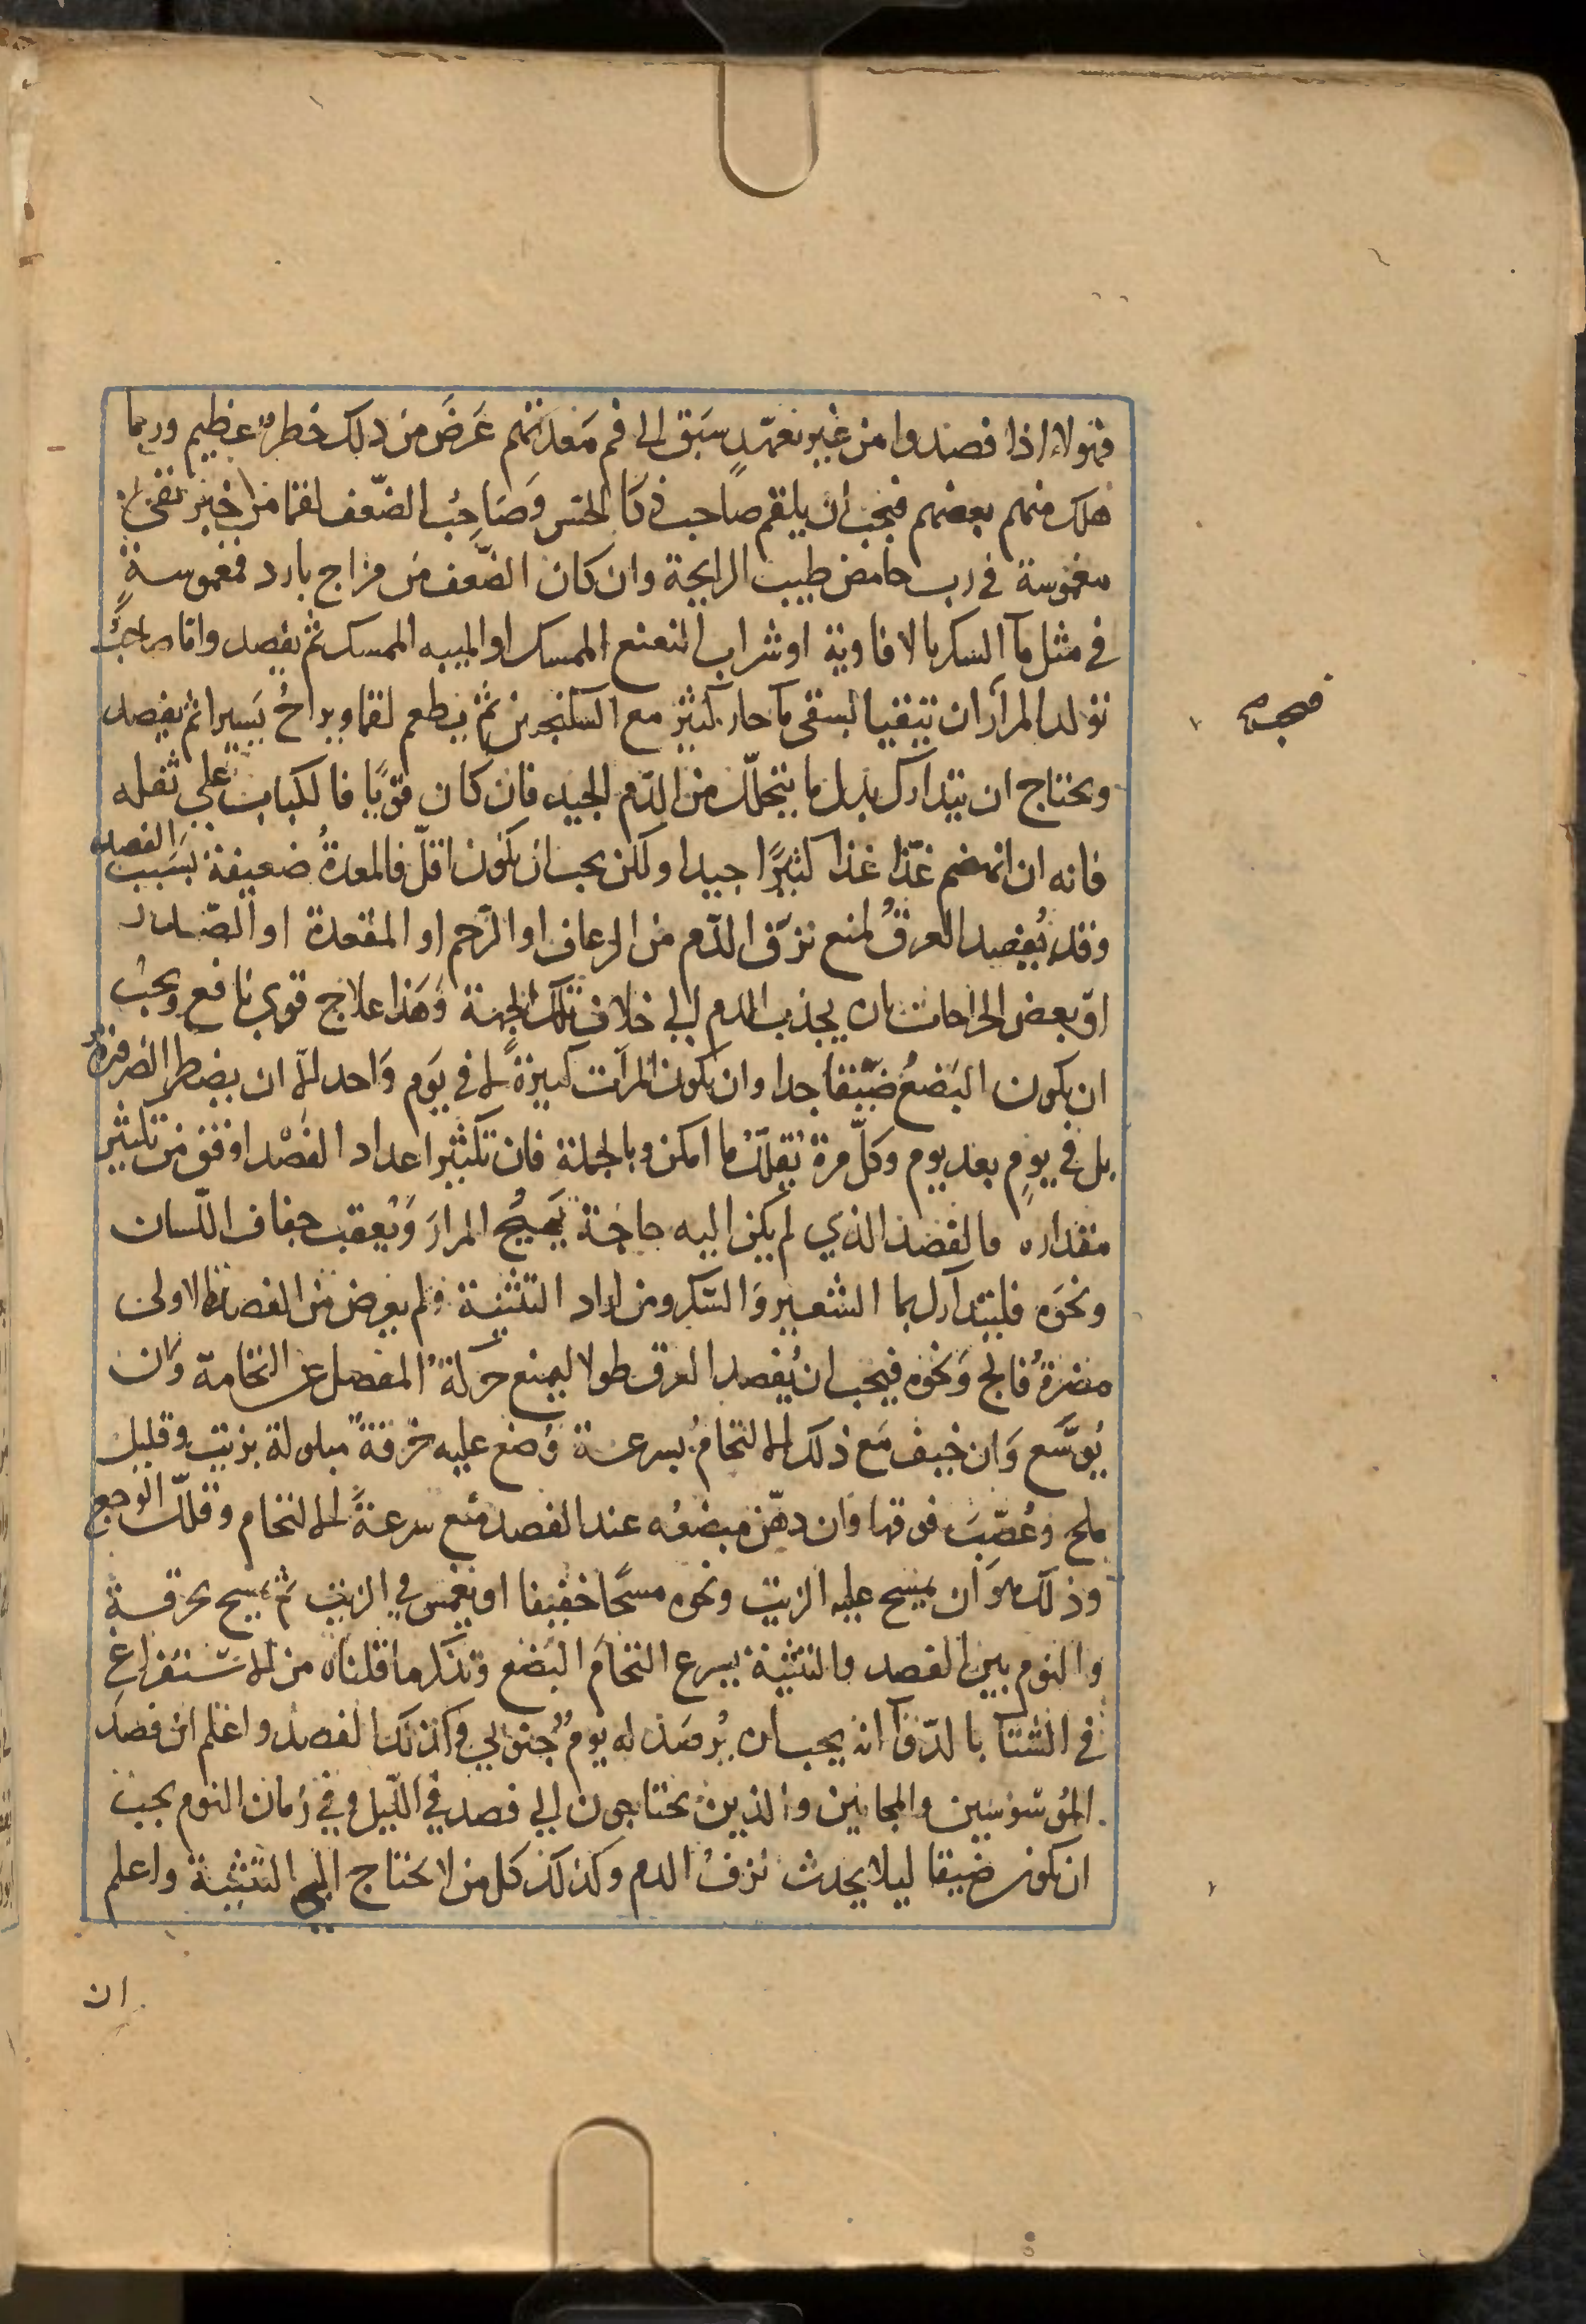 فهولاء اذا فصدوا من غير تعهّدٍ سبق الى فم مَعدتهم عَرَضَ من ذلك خطر عظيم وربما
هلك منهم بعضهم فيجب ان يلقم صاحب ذكا الحس وَصَاحِبُ الضّعف لقما من خبز نقي
مغموسة في رب حامض طيب الرايحة وان كان الضّعف من مزاج بارد فمغموسةٍ
في مثل مآ السكر بالافاوية او شراب النعنع الممسك او الميبه الممسك ثم يفصد واما صاحبُ
تولد المرآر ان يتقيا بسقى مآ حار كثير مع السكنجبين ثم يطعم لقما ويراحُ يَسيرا ثم يفصد
فيجب
ويحتاج ان يتدارك بدل ما يتحلّل من الدّم الجيد فان كان قويًا فالكباب على ثقله
فانه ان انهضم غذّا غذا كثيرًا جيدا ولكن يجب ان يكون اقلّ فالمعدةُ ضعيفة بسَبَب الفصد
وقد يُفصد العرقُ لمنع نزف الدّم من الرعاف او الرّحم او المقعدة او الصّدر
او بعض الخراجات بان يجذب الدم الي خلاف تلك الجهة وَهَذا علاج قوي نافع ويجبُ
ان يكون البَضعُ ضيّقا جدا وان يكون المرآت كثيرةً لا في يَوم وَاحد الا ان يضطر الضرورة
بل في يومٍ بعد يوم وكلّ مرة يُقلّل ما امكن وبالجملة فان تكثير اعداد الفَصْد اوفق من تكثير
مقداره والفصد الذي لم يكن اليه حاجة يَهيجُ المرارَ وَيُعقب جفاف اللّسان
ونحوَه فليتدآرك بما الشعير وَالسّكر ومن اراد التثنية ولم يعرض من الفصدة الاولى
مضرةُ فالج وَنحوه فيجب ان يُفصد العرق طولا ليمنع حركةُ المفصل عن التحامه وان
يُوسَّع وَان خيف مَع ذلك الالتحامُ بسرعة وُضع عليه خرقةٌ مبلولة بزيت وقليل
ملح وعُصّبَ فوقها وان دهّن مبضعُه عند الفصد منع سرعةَ الالتحام وقلّل الوجع
وذلك هوَ ان يمسح عليه الزيت ونحوه مسحًا خفيفا او يغمس في الزيت ثم يمسح بخرقة
والنوم بين الفصد والتثنية يسرع التحامَ البَضع وتذكر ما قلناه من الاستفراغِ
في الشتآ بالدّوآ انه يجب ان يُرصَد له يومٌ جنوبي وكذلك الفصدُ واعلم ان فصدَ
المُوسْوسين والمجانين والذين يحتاجون الي فصد في اللّيل وفي زمان النوم يجب
ان يكون ضيقا ليلا يحدث نزفُ الدم وكذلك كل من لا يحتاج الي التثنية واعلم
ان